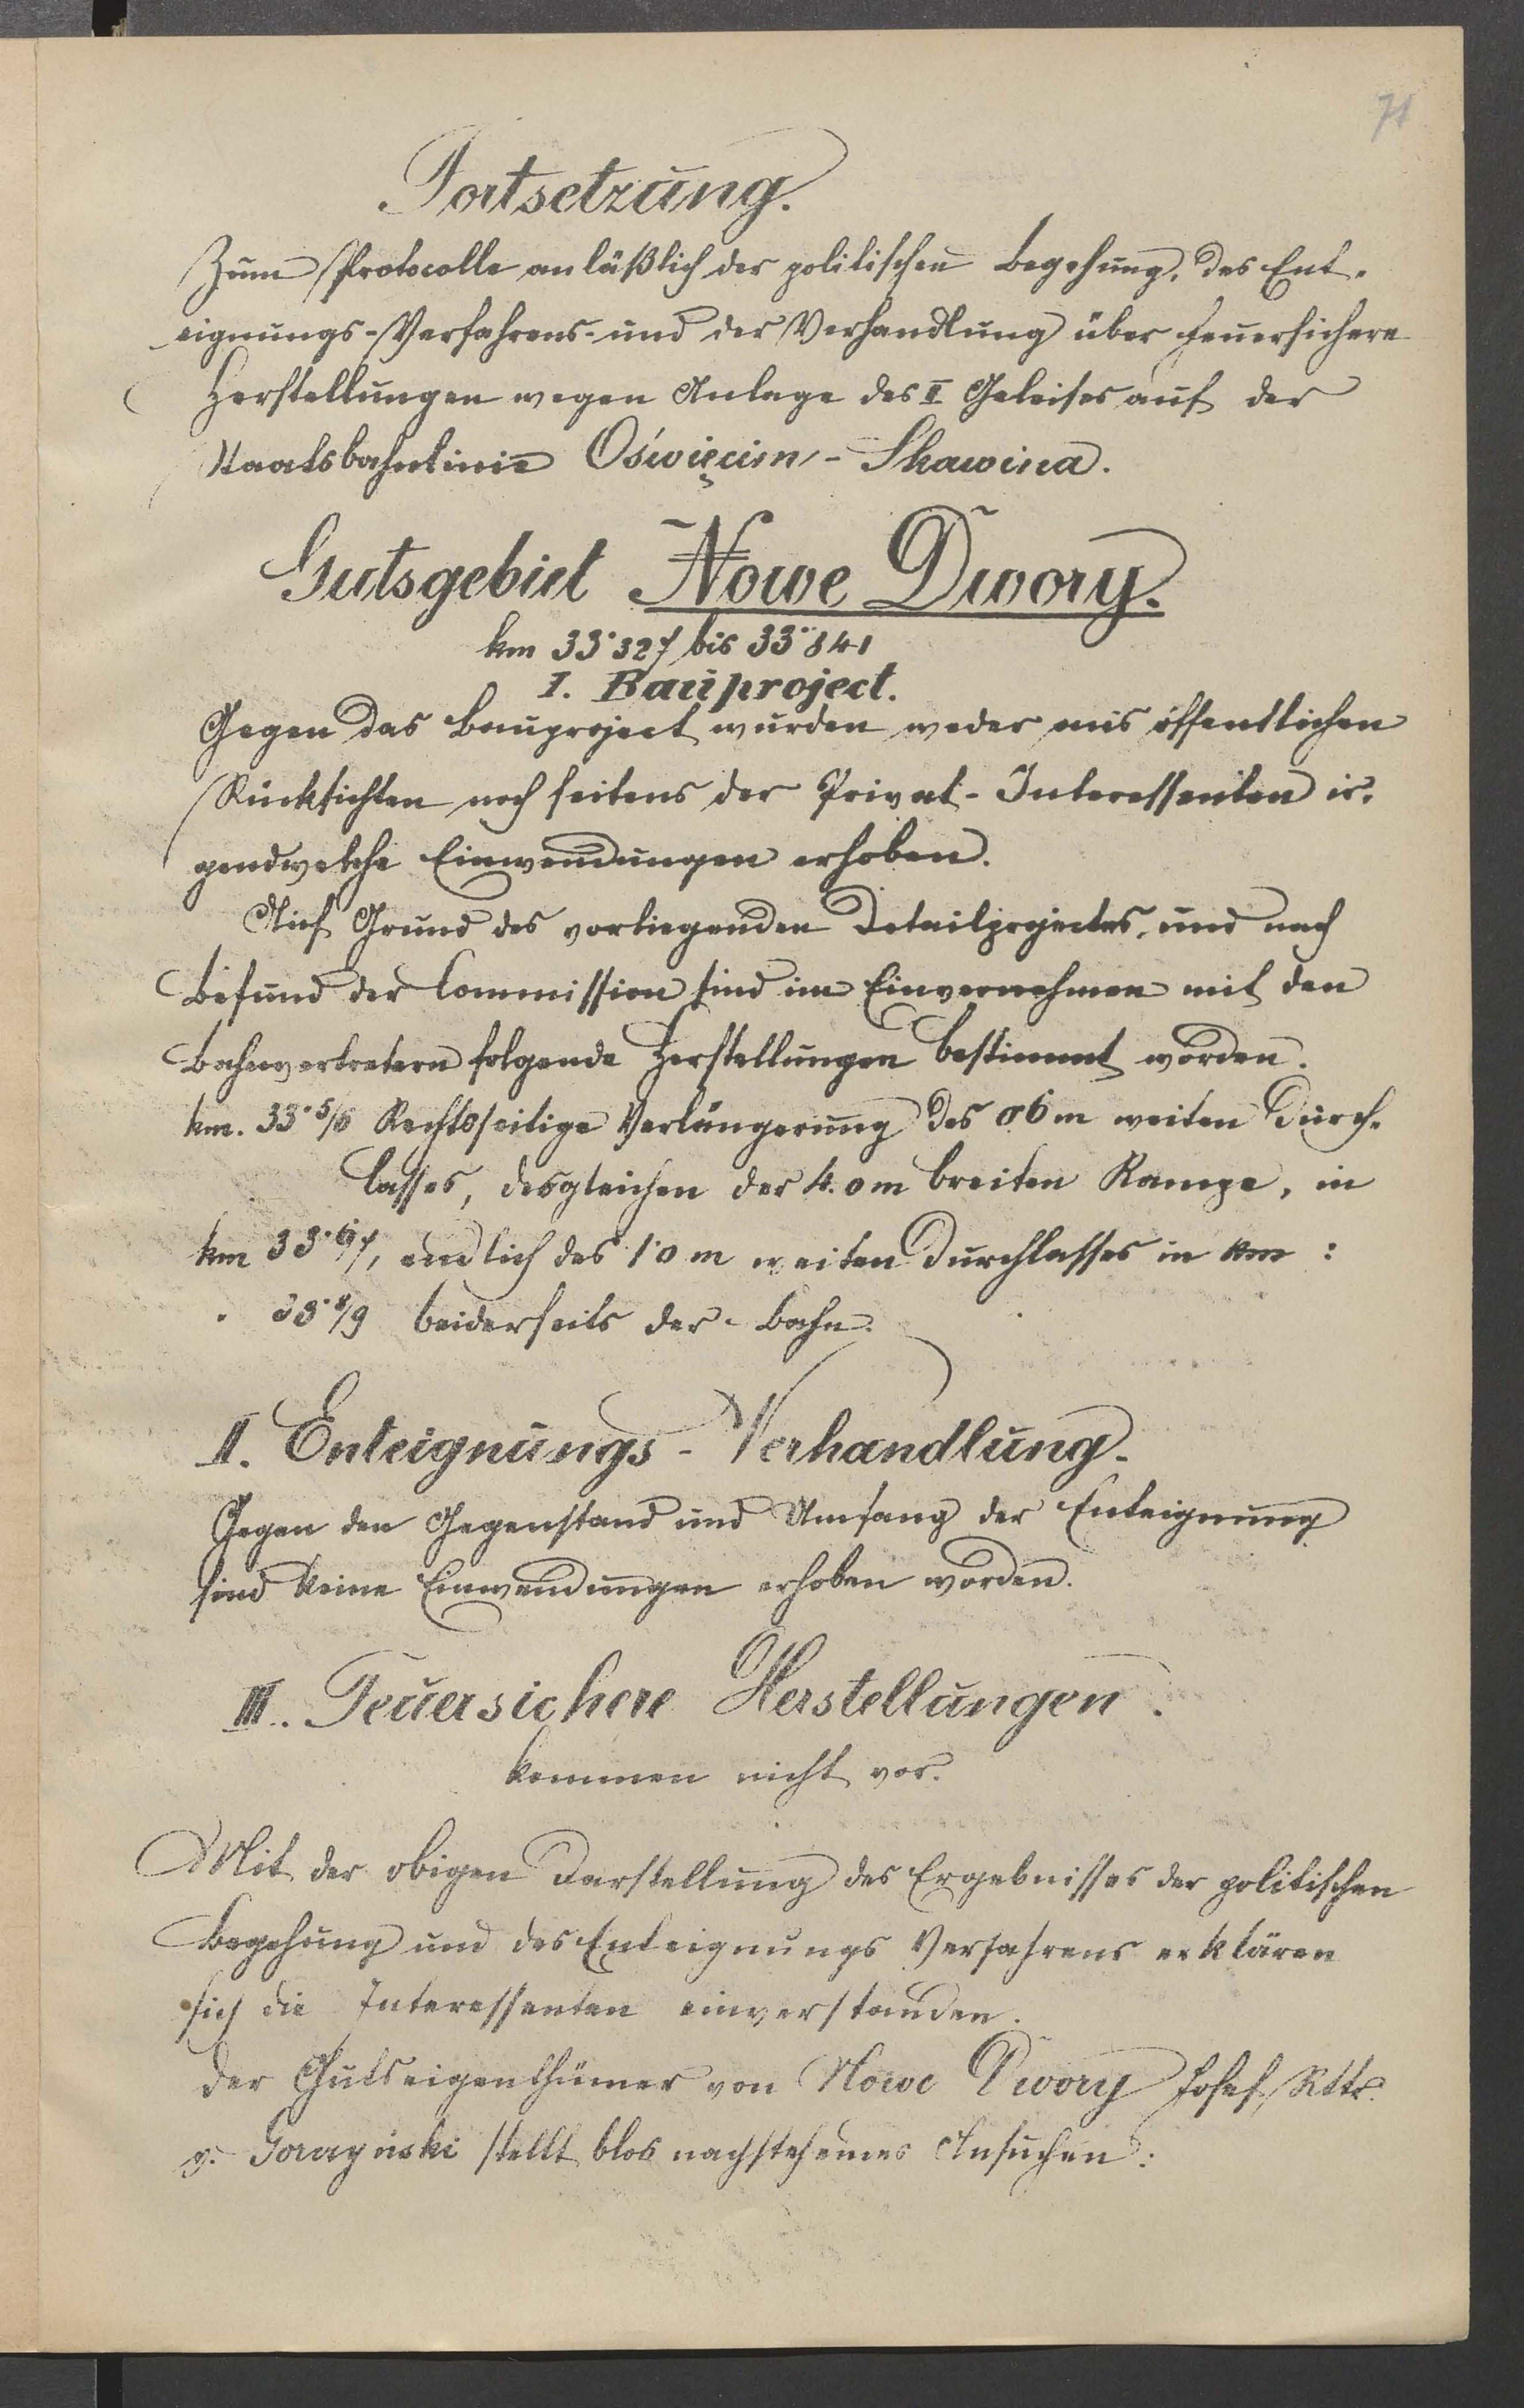 71
Fortsetzung.
Zum Protocolle anläßlich der politischen Begehung, des Ent-
eignungs-Verfahrens- und der Verhandlung über feuersichere
Herstellungen wegen Anlage des II Geleises auf der
Staatsbahnlinie Oświęcim - Skawina.
Gutsgebiet Nowe Dwory.
km 33·327 bis 33·841
I. Bauproject.
Gegen das Bauproject wurden weder aus öffentlichen
Rücksichten noch seitens der Privat-Interessenten ir-
gendwelche Einwendungen erhoben.
Auf Grund des vorliegenden Detailprojectes, und nach
Befund der Commission sind im Einvernehmen mit den
Bahnvertretern folgende Herstellungen bestimmt worden.
km. 33·5/6 Rechtsseitige Verlängerung des 0·6 m weiten Durch-
lasses, desgleichen der 4.0 m breiten Rampe, in
km 33·6/7, endlich des 1·0 m weiten Durchlasses in km :
33·8/9 beiderseits der Bahn.
II. Enteignungs - Verhandlung.
Gegen den Gegenstand und Umfang der Enteignung
sind keine Einwendungen erhoben worden.
III. Feuersichere Herstellungen.
kommen nicht vor.
Mit der obigen Darstellung des Ergebnisses der politischen
Begehung und des Enteignungs Verfahrens erklären
sich die Interessenten einverstanden.
Der Gutseigenthümer von Nowe Dwory Josef Rttr.
v. Gorczyński stellt blos nachstehendes Ansuchen: